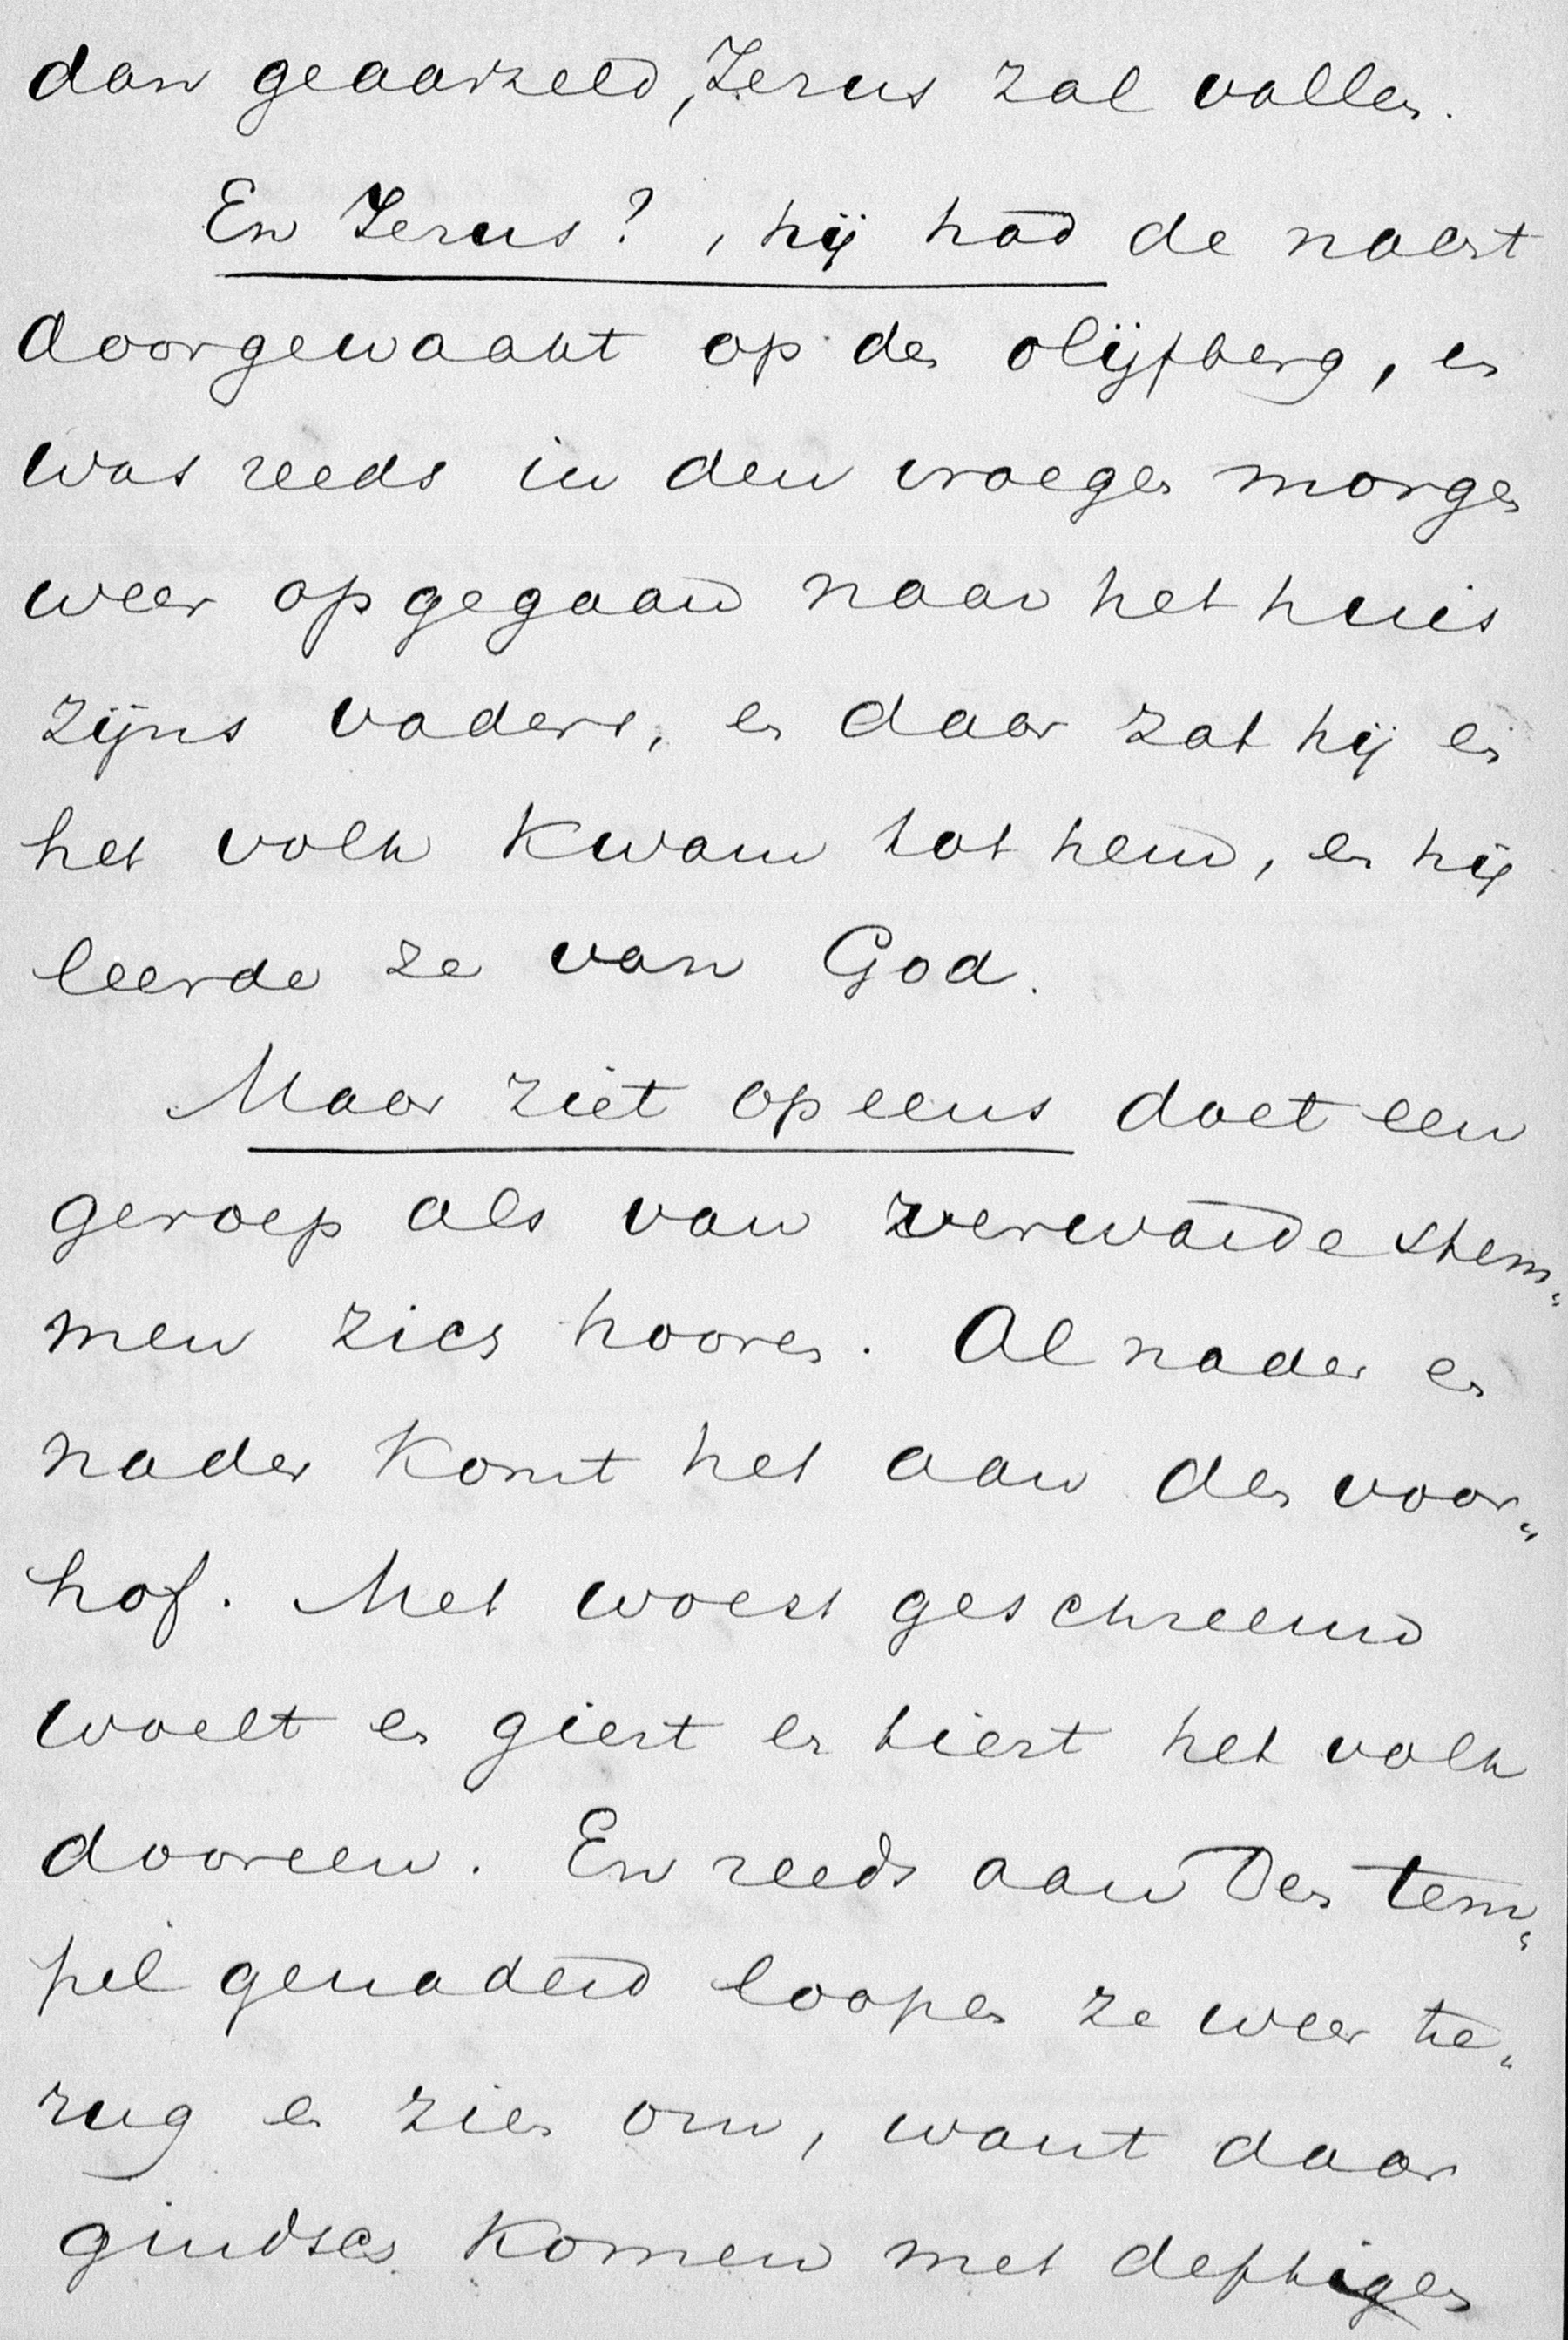 dan geaarzeld, Jezus zal vallen.
En Jezus?, hij had de nacht
doorgewaakt op den olijfberg, en
was reeds in den vroegen morgen
weer opgegaan naar het huis
zijns vaders, en daar zat hij en
het volk kwam tot hem, en hij
leerde ze van God.
Maar ziet opeens doet een
geroep als van verwarde stem„
men zich hooren. Al nader en
nader komt het aan den voor„
hof. Met woest geschreeuw
woelt en giert en tiert het volk
dooreen. En reeds aan den tem„
pel genaderd loopen ze weer te„
rug en zien om, want daar
gindsch komen met deftigen